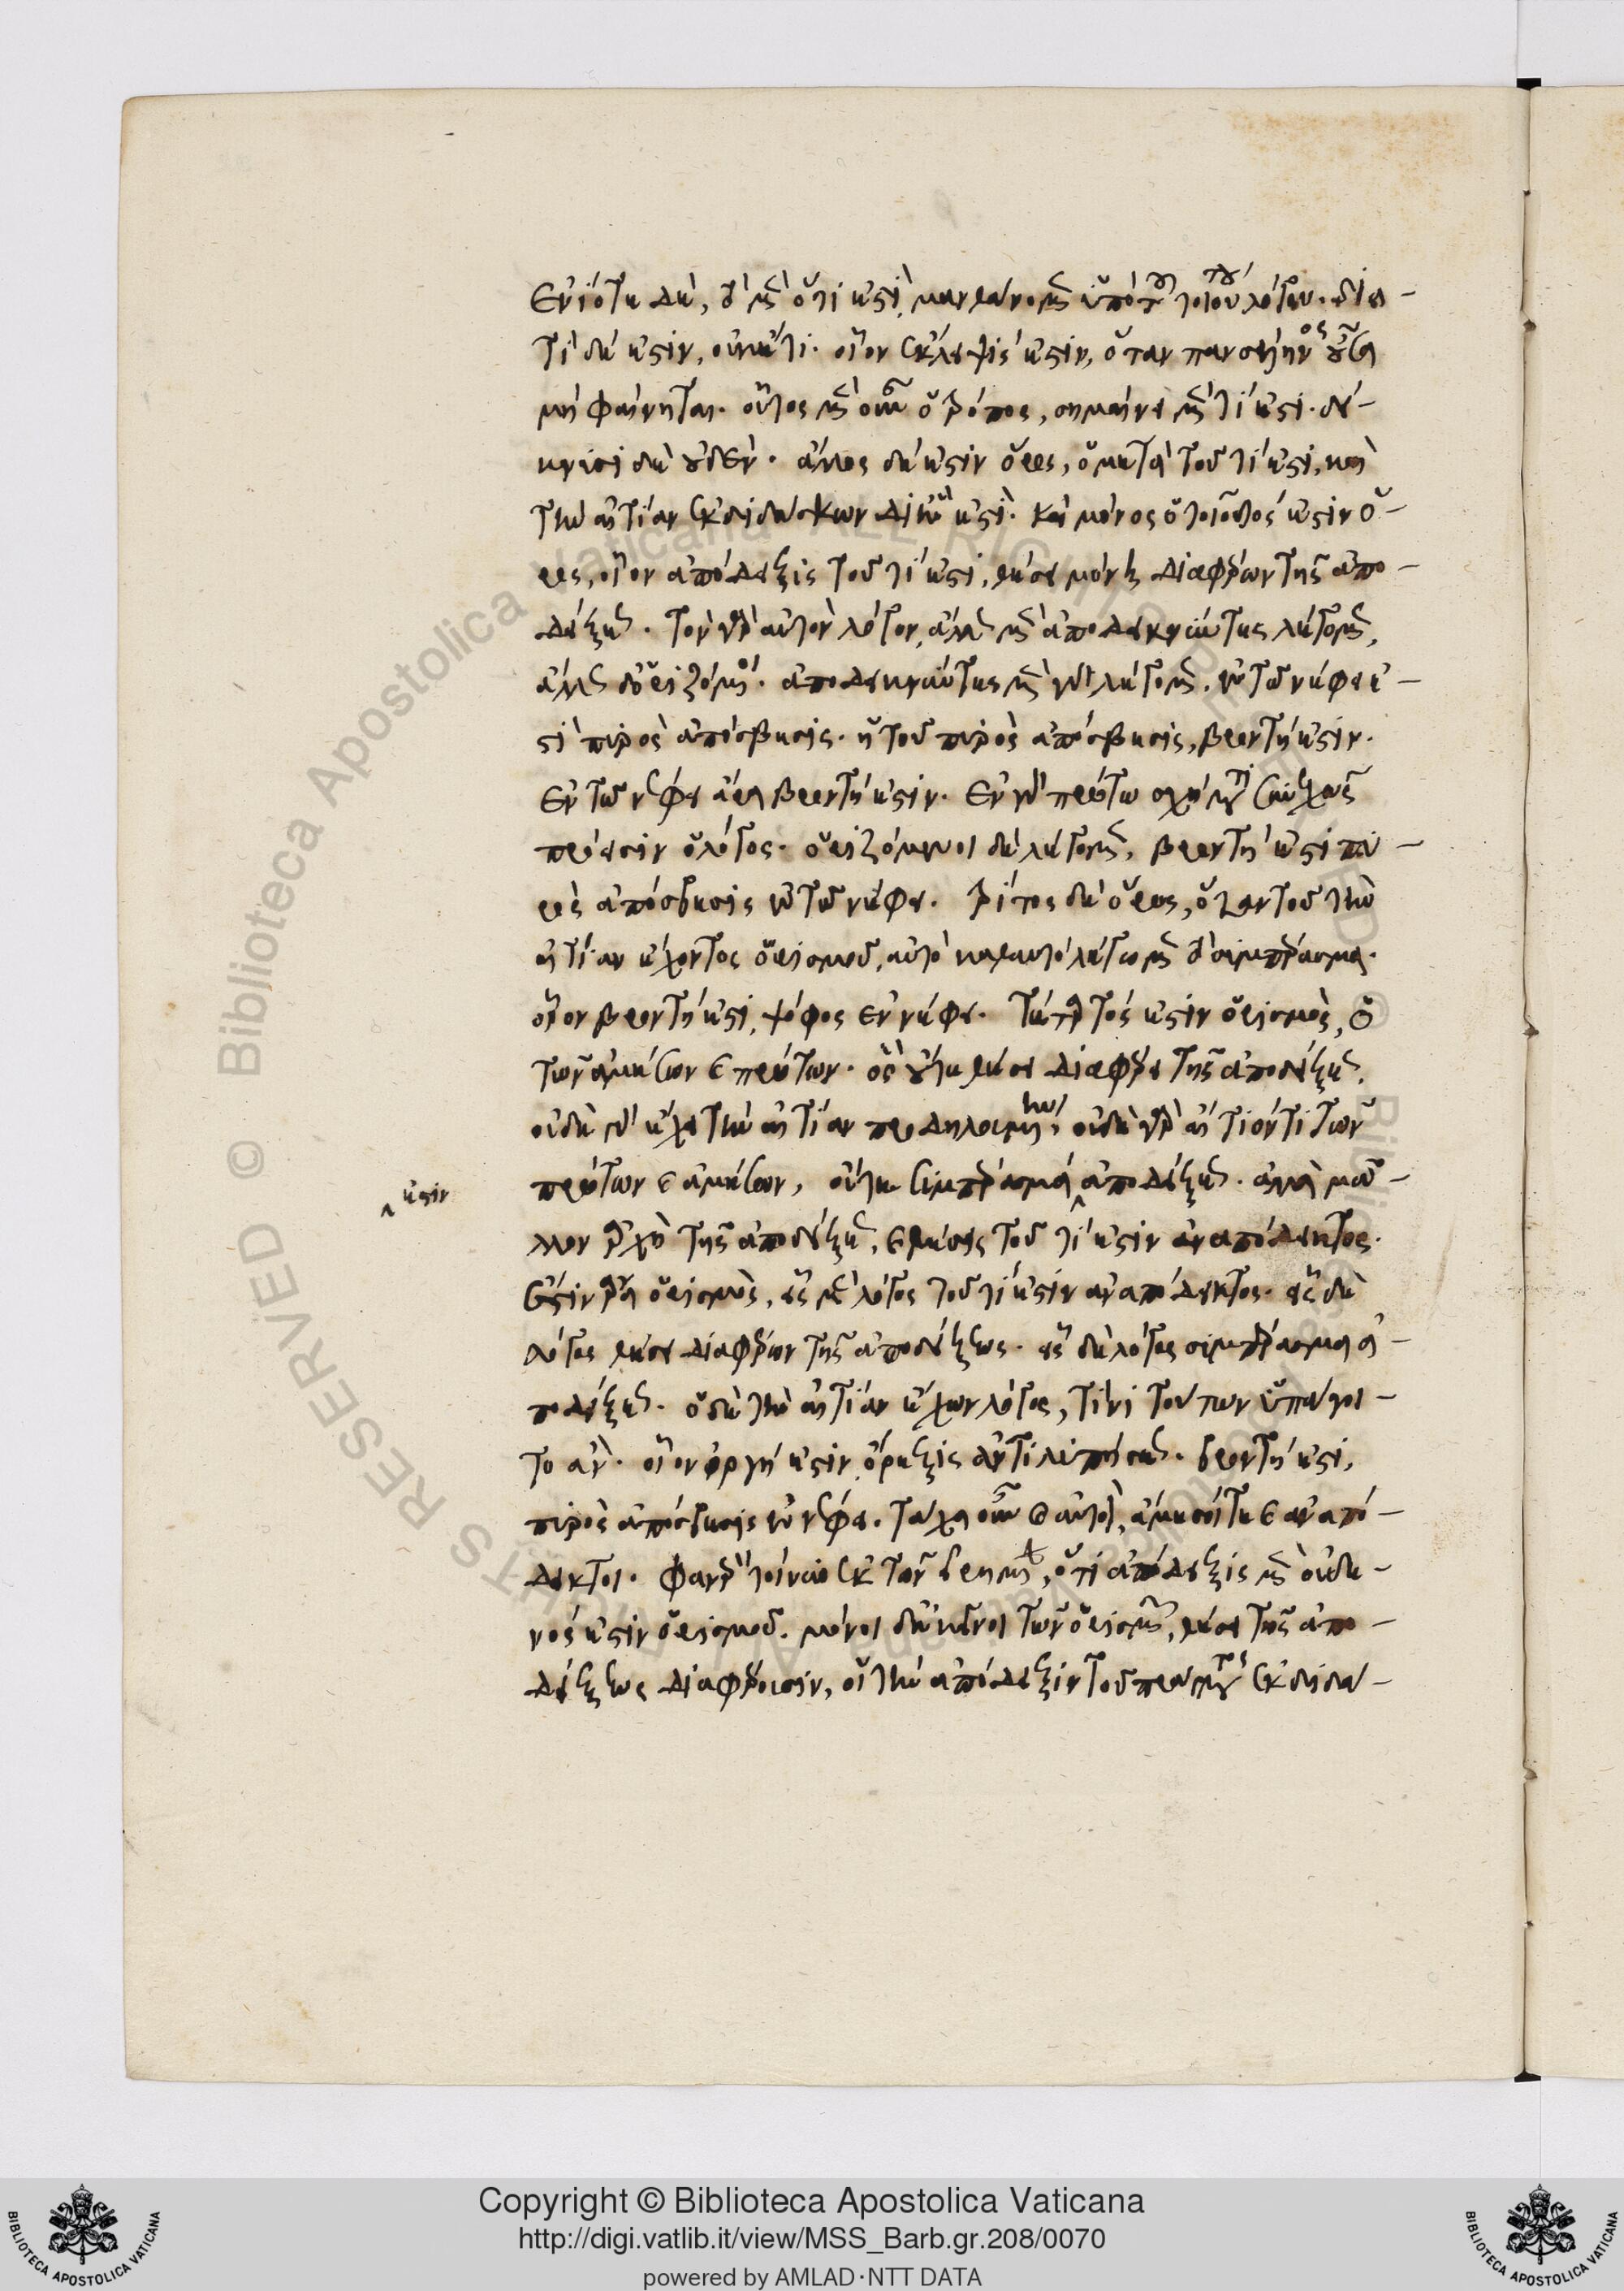 ἐνίοτε δὲ, τὸ μὲν ὅτι ἐστὶ μανθάνομεν ὑπὸ τοῦ τοιούτου λόγου. δια-
τί δέ ἐστιν, οὐκέτι. οἷον ἔκλειψίς ἐστιν, ὅταν πανσέληνος οὖσα
μὴ φαίνηται. οὗτος μὲν οὖν ὁ τρόπος, σημαίνει μὲν τί ἐστι. δεί-
κνυσι δὲ οὐδέν. ἄλλος δέ ἐστιν ὅρος, ὁ μετὰ τοῦ τί ἐστι, καὶ
τὴν αἰτίαν ἐκδιδάσκων δι' ἥν ἐστι. καὶ μόνος ὁ τοιοῦτός ἐστιν ὅ-
ρος, οἷον ἀπόδειξις τοῦ τί ἐστι, θέσει μόνῃ διαφέρων τῆς ἀπο-
δείξεως. τὸν γὰρ αὐτὸν λόγον, ἄλλως μὲν ἀποδεικνύντες λέγομεν,
ἄλλως δὲ ὁριζόμενοι. ἀποδεικνύντες μὲν γὰρ λέγομεν, ἐν τῷ νέφει ἐ-
στὶ πυρὸς ἀπόσβεσις. ἡ τοῦ πυρὸς ἀπόσβεσις, βροντή ἐστιν.
ἐν τῷ νέφει ἄρα βροντή ἐστιν. ἐν γὰρ πρώτῳ σχήματι συνεχῶς
πρόεισιν ὁ λόγος. ὁριζόμενοι δὲ λέγομεν, βροντή ἐστι πυ-
ρὸς ἀπόσβεσις ἐν τῷ νέφει. τρίτος δὲ ὅρος, ὅταν τοῦ τὴν
αἰτίαν ἔχοντος ὁρισμοῦ, αὐτὸ καθ' αὑτὸ λέγωμεν τὸ συμπέρασμα.
οἷον βροντή ἐστι, ψόφος ἐν νέφει. τέταρτός ἐστιν ὁρισμὸς, ὁ
τῶν ἀμέσων καὶ πρώτων. ὃς οὔτε θέσει διαφέρει τῆς ἀποδείξεως.
οὐδὲ γὰρ ἔχει τὴν αἰτίαν προδηλουμένην, οὐδὲ γὰρ αἴτιόν τι τῶν
πρώτων καὶ ἀμέσων, οὔτε συμπέρασμά ἀποδείξεως. ἀλλὰ μᾶλ-
^ ἐστιν
λον ἀρχὴ τῆς ἀποδείξεως, καὶ θέσις τοῦ τί ἐστιν ἀναπόδεικτος.
ἔστιν ἄρα ὁρισμὸς, εἷς μὲν λόγος τοῦ τί ἐστιν ἀναπόδεικτος. εἷς δὲ
λόγος θέσει διαφέρων τῆς ἀποδείξεως. εἷς δὲ λόγος συμπέρασμα ἀ-
ποδείξεως. ὁ δὲ τὴν αἰτίαν ἔχων λόγος, τίνι τούτων ὑπάγοι-
το ἄν. οἷον ὀργή ἐστιν ὄρεξις ἀντιλυπήσεως. βροντή ἐστι,
πυρὸς ἀπόσβεσις ἐν νέφει. τάχα οὖν καὶ αὐτοὶ, ἄμεσοί τε καὶ ἀναπό-
δεικτοι. φανερὸν τοίνυν ἐκ τῶν εἰρημένων, ὅτι ἀπόδειξις μὲν οὐδε-
νός ἐστιν ὁρισμοῦ. μόνοι δὲ ἐκεῖνοι τῶν ὁρισμῶν, θέσει τῆς ἀπο-
δείξεως διαφέρουσιν, οἳ τὴν ἀπόδειξιν τοῦ πράγματος ἐκδιδά-
Copyright © Biblioteca Apostolica Vaticana
http://digi.vatlib.it/view/MSS_Barb.gr.208/0070
powered by AMLAD·NTT DATA